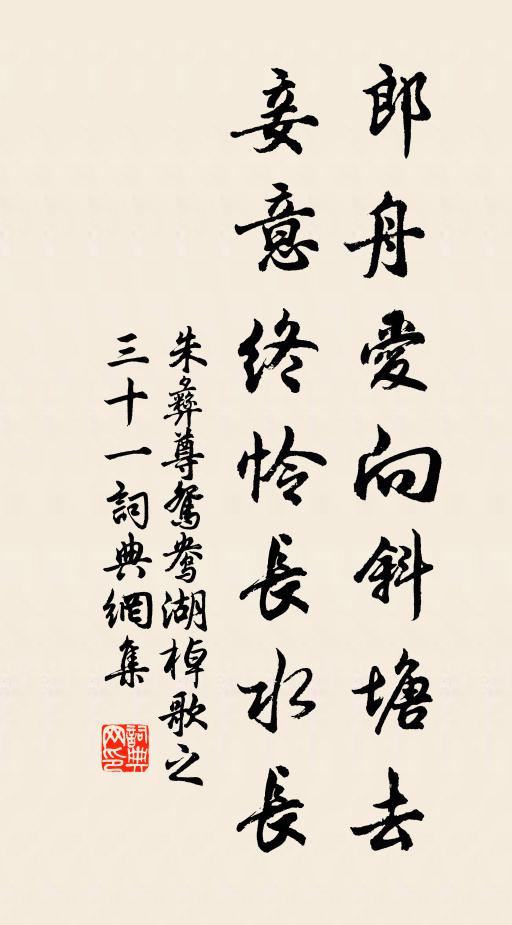 郎舟愛向斜塘去
妾意終怜長水長
朱彝尊鴛鴦湖棹歌之
三十一詞典網集
詞典
网印